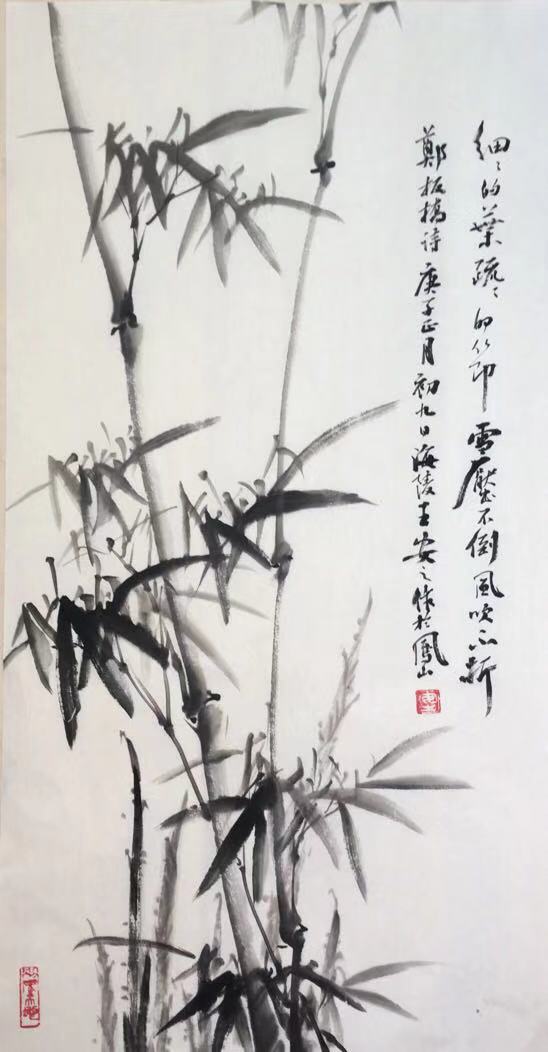 细〻的葉疏〻的节雪壓不倒風吹不折
鄭板橋诗庚子正月初九日海陵王安之作於鳳山